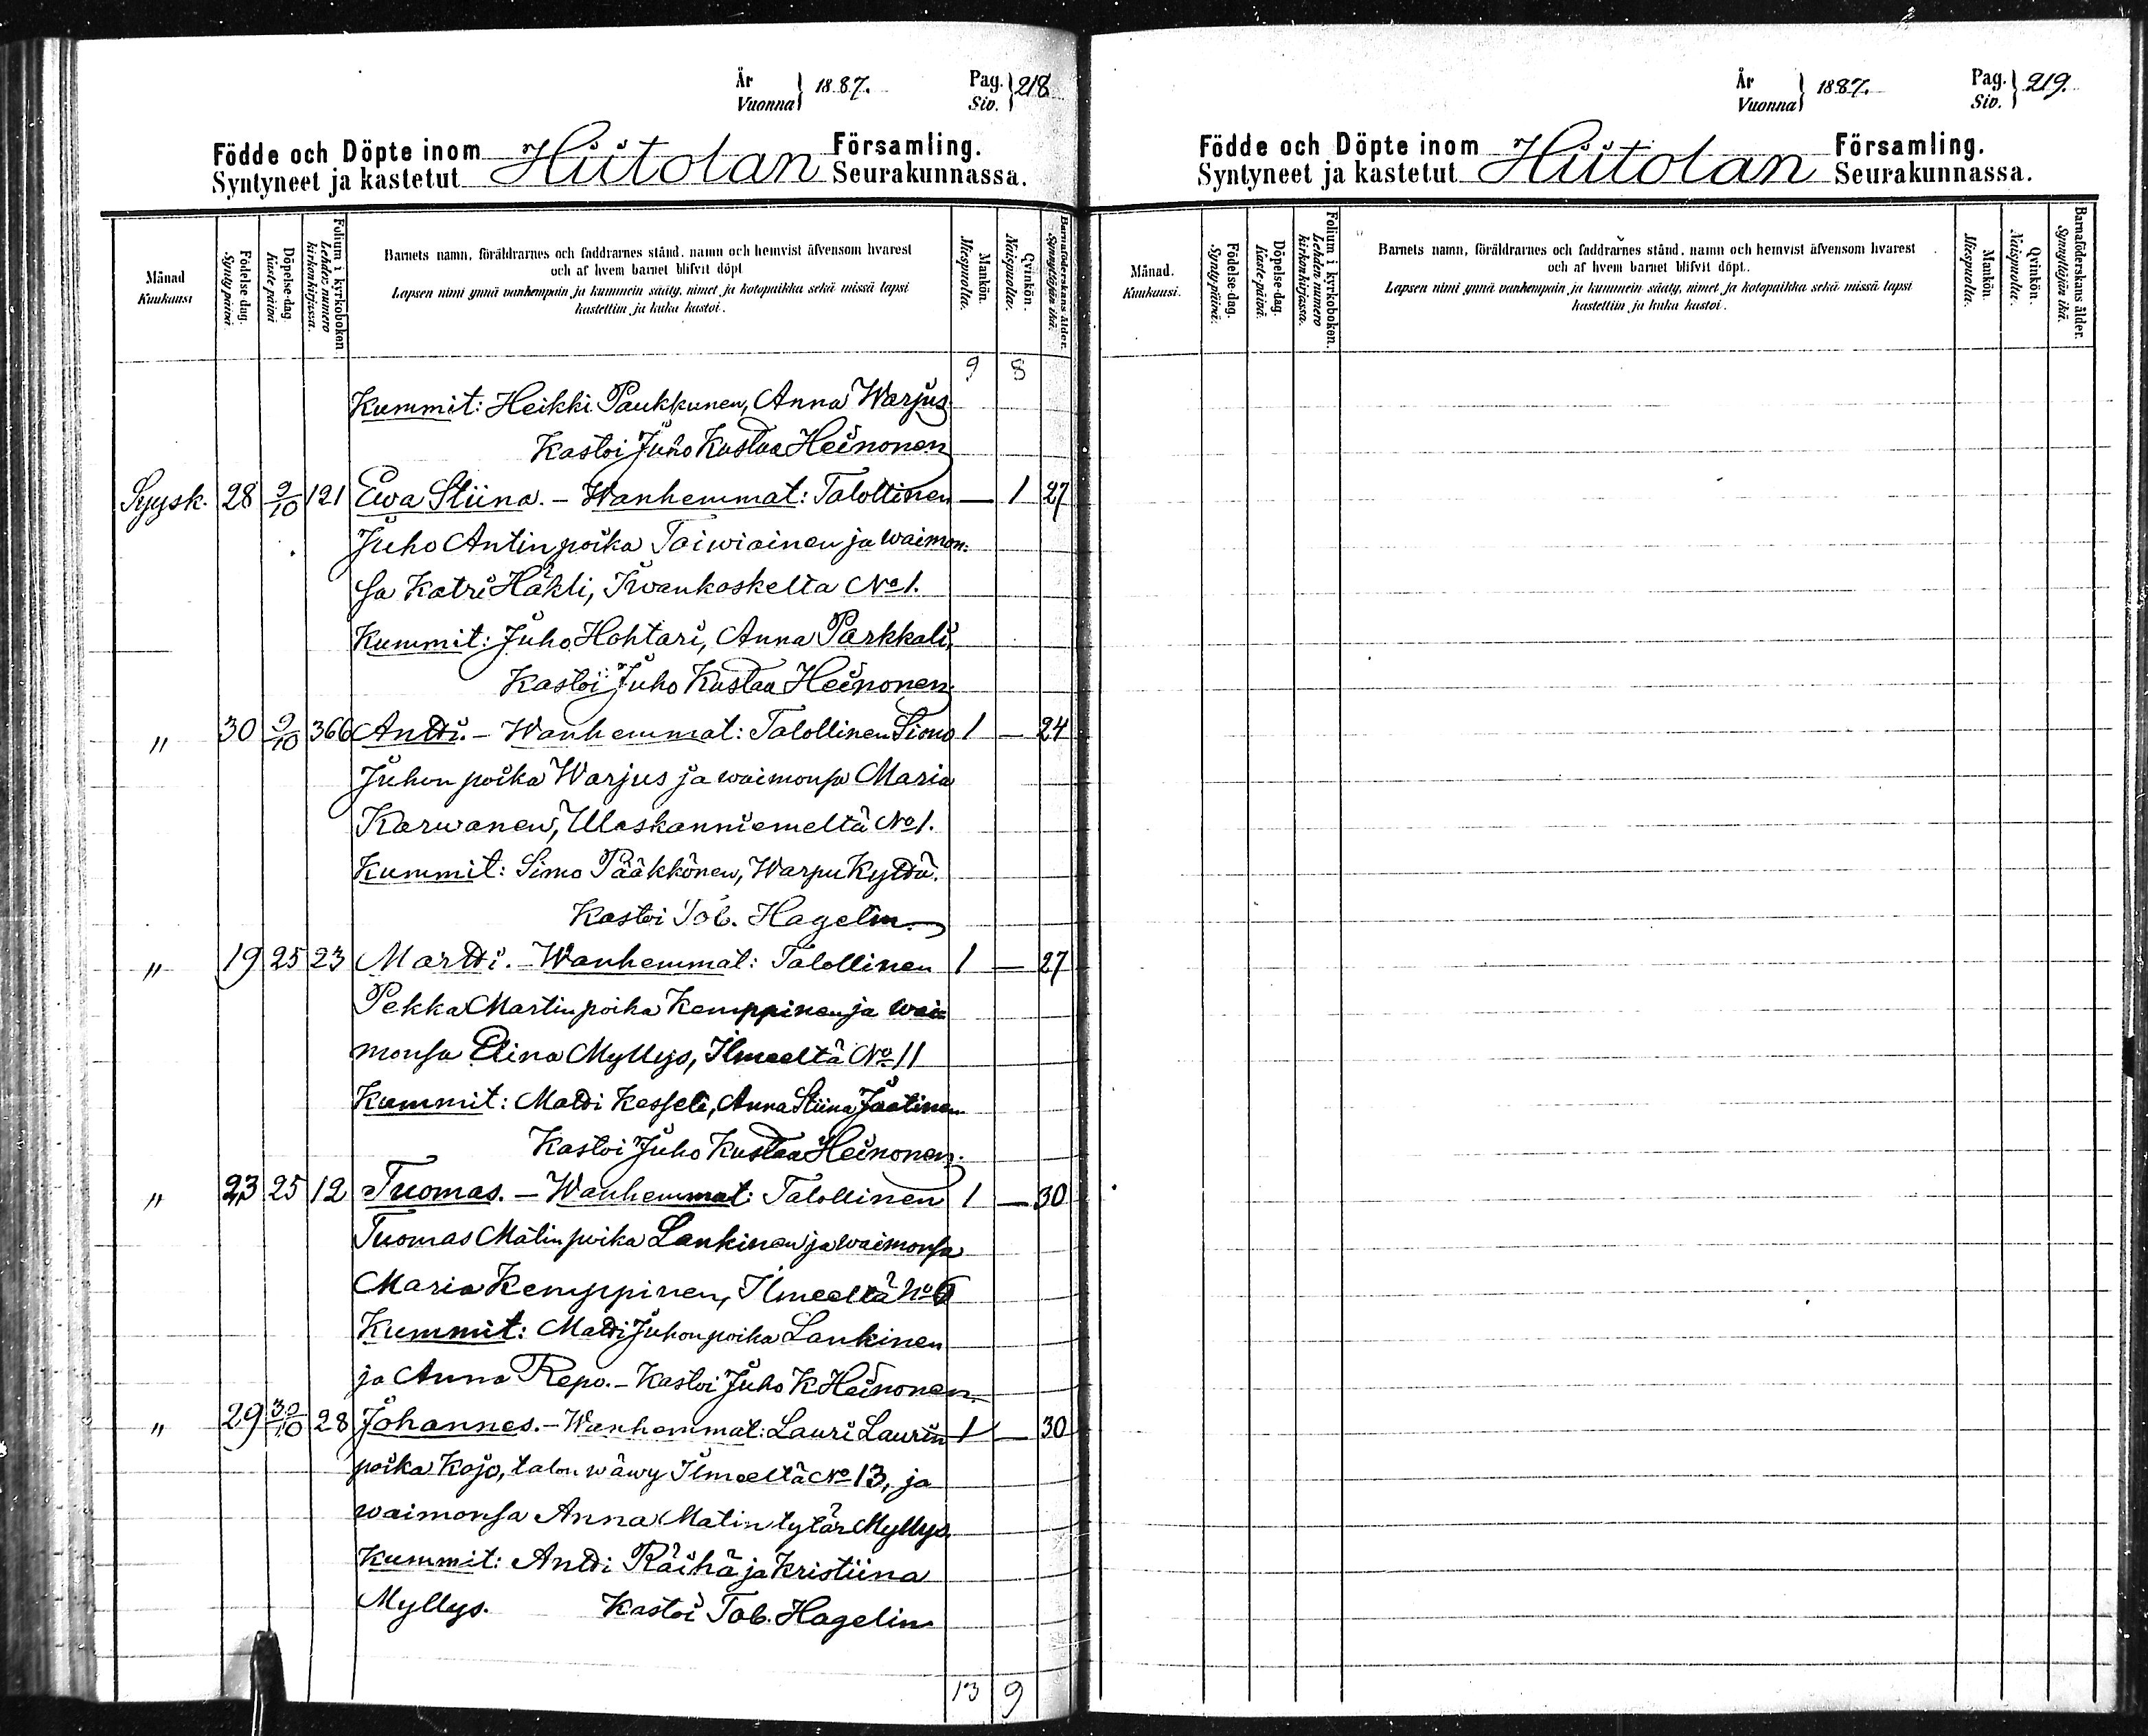 År
Vuonna } 1887.
Pag.
Siv. } 218
Födde och Döpte inom Hiitolan Församling.
Syntyneet ja kastetut Seurakunnassa.
Månad
Kuukausi
Födelse-dag.
Syntypäivä.
Döpelse-dag.
Kastepäivä
Folium i kyrkoboken
Lehden numero kirkonkirjassa.
Barnets namn, föräldrarnes och faddrarnes stånd, namn och hemvist äfvensom hvarest
och af hvem barnet blifvit döpt
Lapsen nimi ynnä vanhempain ja kummein sääty, nimet ja kotopaikka sekä missä lapsi
kastettiin ja kuka kastoi.
Mankön.
Miespuolta.
Qvinkön.
Naispuolta.
Barnaföderskans ålder.
Synnyttäjän ikä.
9 8
Kummit: Heikki Paukkunen, Anna Warjus
Kastoi Juho Kustaa Heinonen
Syysk. 28 9/10 121 Ewa Stiina. - Wanhemmat: Talollinen — 1 27
Juho Antinpoika Toiwiainen ja waimon-
sa Katri Häkli, Iwankoskelta No 1.
Kummit: Juho Hohtari, Anna Parkkali,
Kastoi Juho Kustaa Heinonen.
" 30 9/10 366 Antti. - Wanhemmat: Talollinen Simo 1 — 24
Juhon poika Warjus ja waimonsa Maria
Karwanen, Ulaskanniemeltä No 1.
Kummit: Simo Pääkkönen, Warpu Kyttä.
Kastoi Tob. Hagelin.
" 19 25 23 Martti. - Wanhemmat: Talollinen 1 — 27
Pekka Martinpoika Kemppinen ja wai-
monsa Elina Myllys, Ilmeeltä No 11
Kummit: Matti Kesseli, Anna Stiina Jaatinen
Kastoi Juho Kustaa Heinonen.
" 23 25 12 Tuomas. - Wanhemmat: Talollinen 1 — 30
Tuomas Matinpoika Lankinen ja waimonsa
Maria Kemppinen, Ilmeeltä No
Kummit: Matti Juhonpoika Lankinen
ja Anna Repo. - Kastoi Juho K Heinonen.
" 29 30/10 28 Johannes. - Wanhemmat: Lauri Laurin 1 — 30
poika Kojo, talon wäwy Ilmeeltä No 13, ja
waimonsa Anna Matin tytär Myllys.
Kummit: Antti Räihä ja Kristiina
Myllys. Kastoi Tob. Hagelin
13 9
År
Vuonna } 1887.
Pag.
Siv. } 219.
Födde och Döpte inom Hiitolan Församling.
Syntyneet ja kastetut Seurakunnassa.
Månad.
Kuukausi.
Födelse-dag.
Syntypäivä.
Döpelse-dag.
Kastepäivä.
Folium i kyrkoboken.
Lehden numero kirkonkirjassa.
Barnets namn, föräldrarnes och faddrarnes stånd, namn och hemvist äfvensom hvarest
och af hvem barnet blifvit döpt.
Lapsen nimi ynnä vanhempain ja kummein sääty, nimet ja kotopaikka sekä missä lapsi
kastettiin ja kuka kastoi.
Mankön.
Miespuolta.
Qvinkön.
Naispuolta.
Barnaföderskans ålder.
Synnyttäjän ikä.